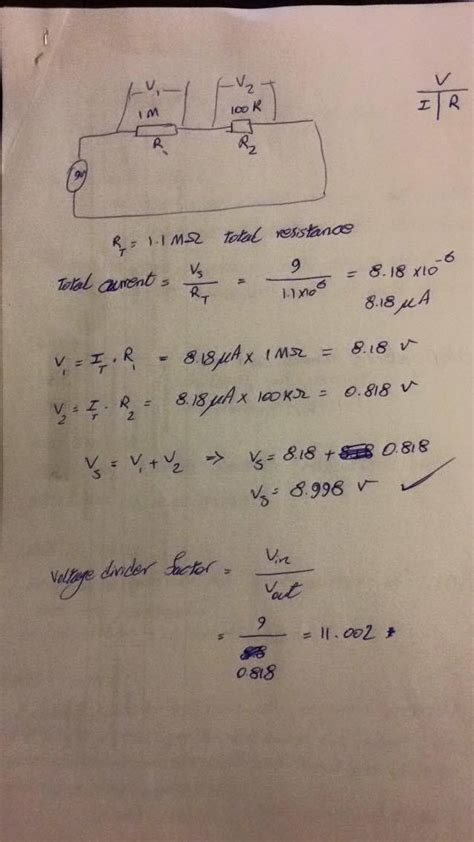 V₁ V₂
1M 100K
R₁ R₂
9v
V
I | R
R_T = 1.1 MΩ Total resistance
Total current = V_S / R_T = 9 / 1.1×10⁶ = 8.18 ×10⁻⁶
8.18 µA
V₁ = I_T · R₁ = 8.18µA × 1MΩ = 8.18 v
V₂ = I_T · R₂ = 8.18µA × 100KΩ = 0.818 v
V_S = V₁ + V₂ => V_S = 8.18 + 0.818
V_S = 8.998 v ✓
Voltage divider factor = Vin / Vout
= 9 / 0.818 = 11.002